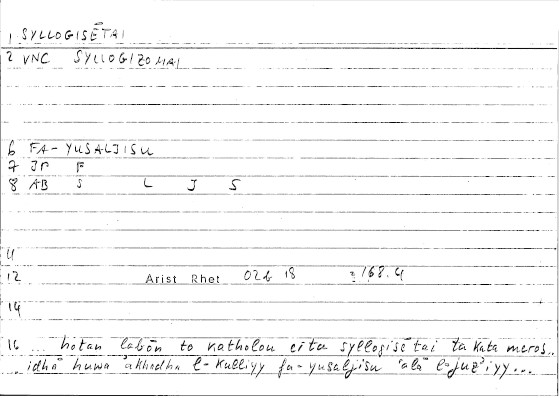 1 SYLLOGISĒTAI
2 VNC SYLLOGIZOMAI
6 FA-YUSALJISU
7 JP F
8 AB S L J S
11
12 Arist Rhet 02b 18 =168.4
14
16 ... hotan labōn to katholou eita syllogisētai ta kata meros..
idhā huwa 'akhadha l-kulliyy fa-yusaljisu 'alā l-juz'iyy...